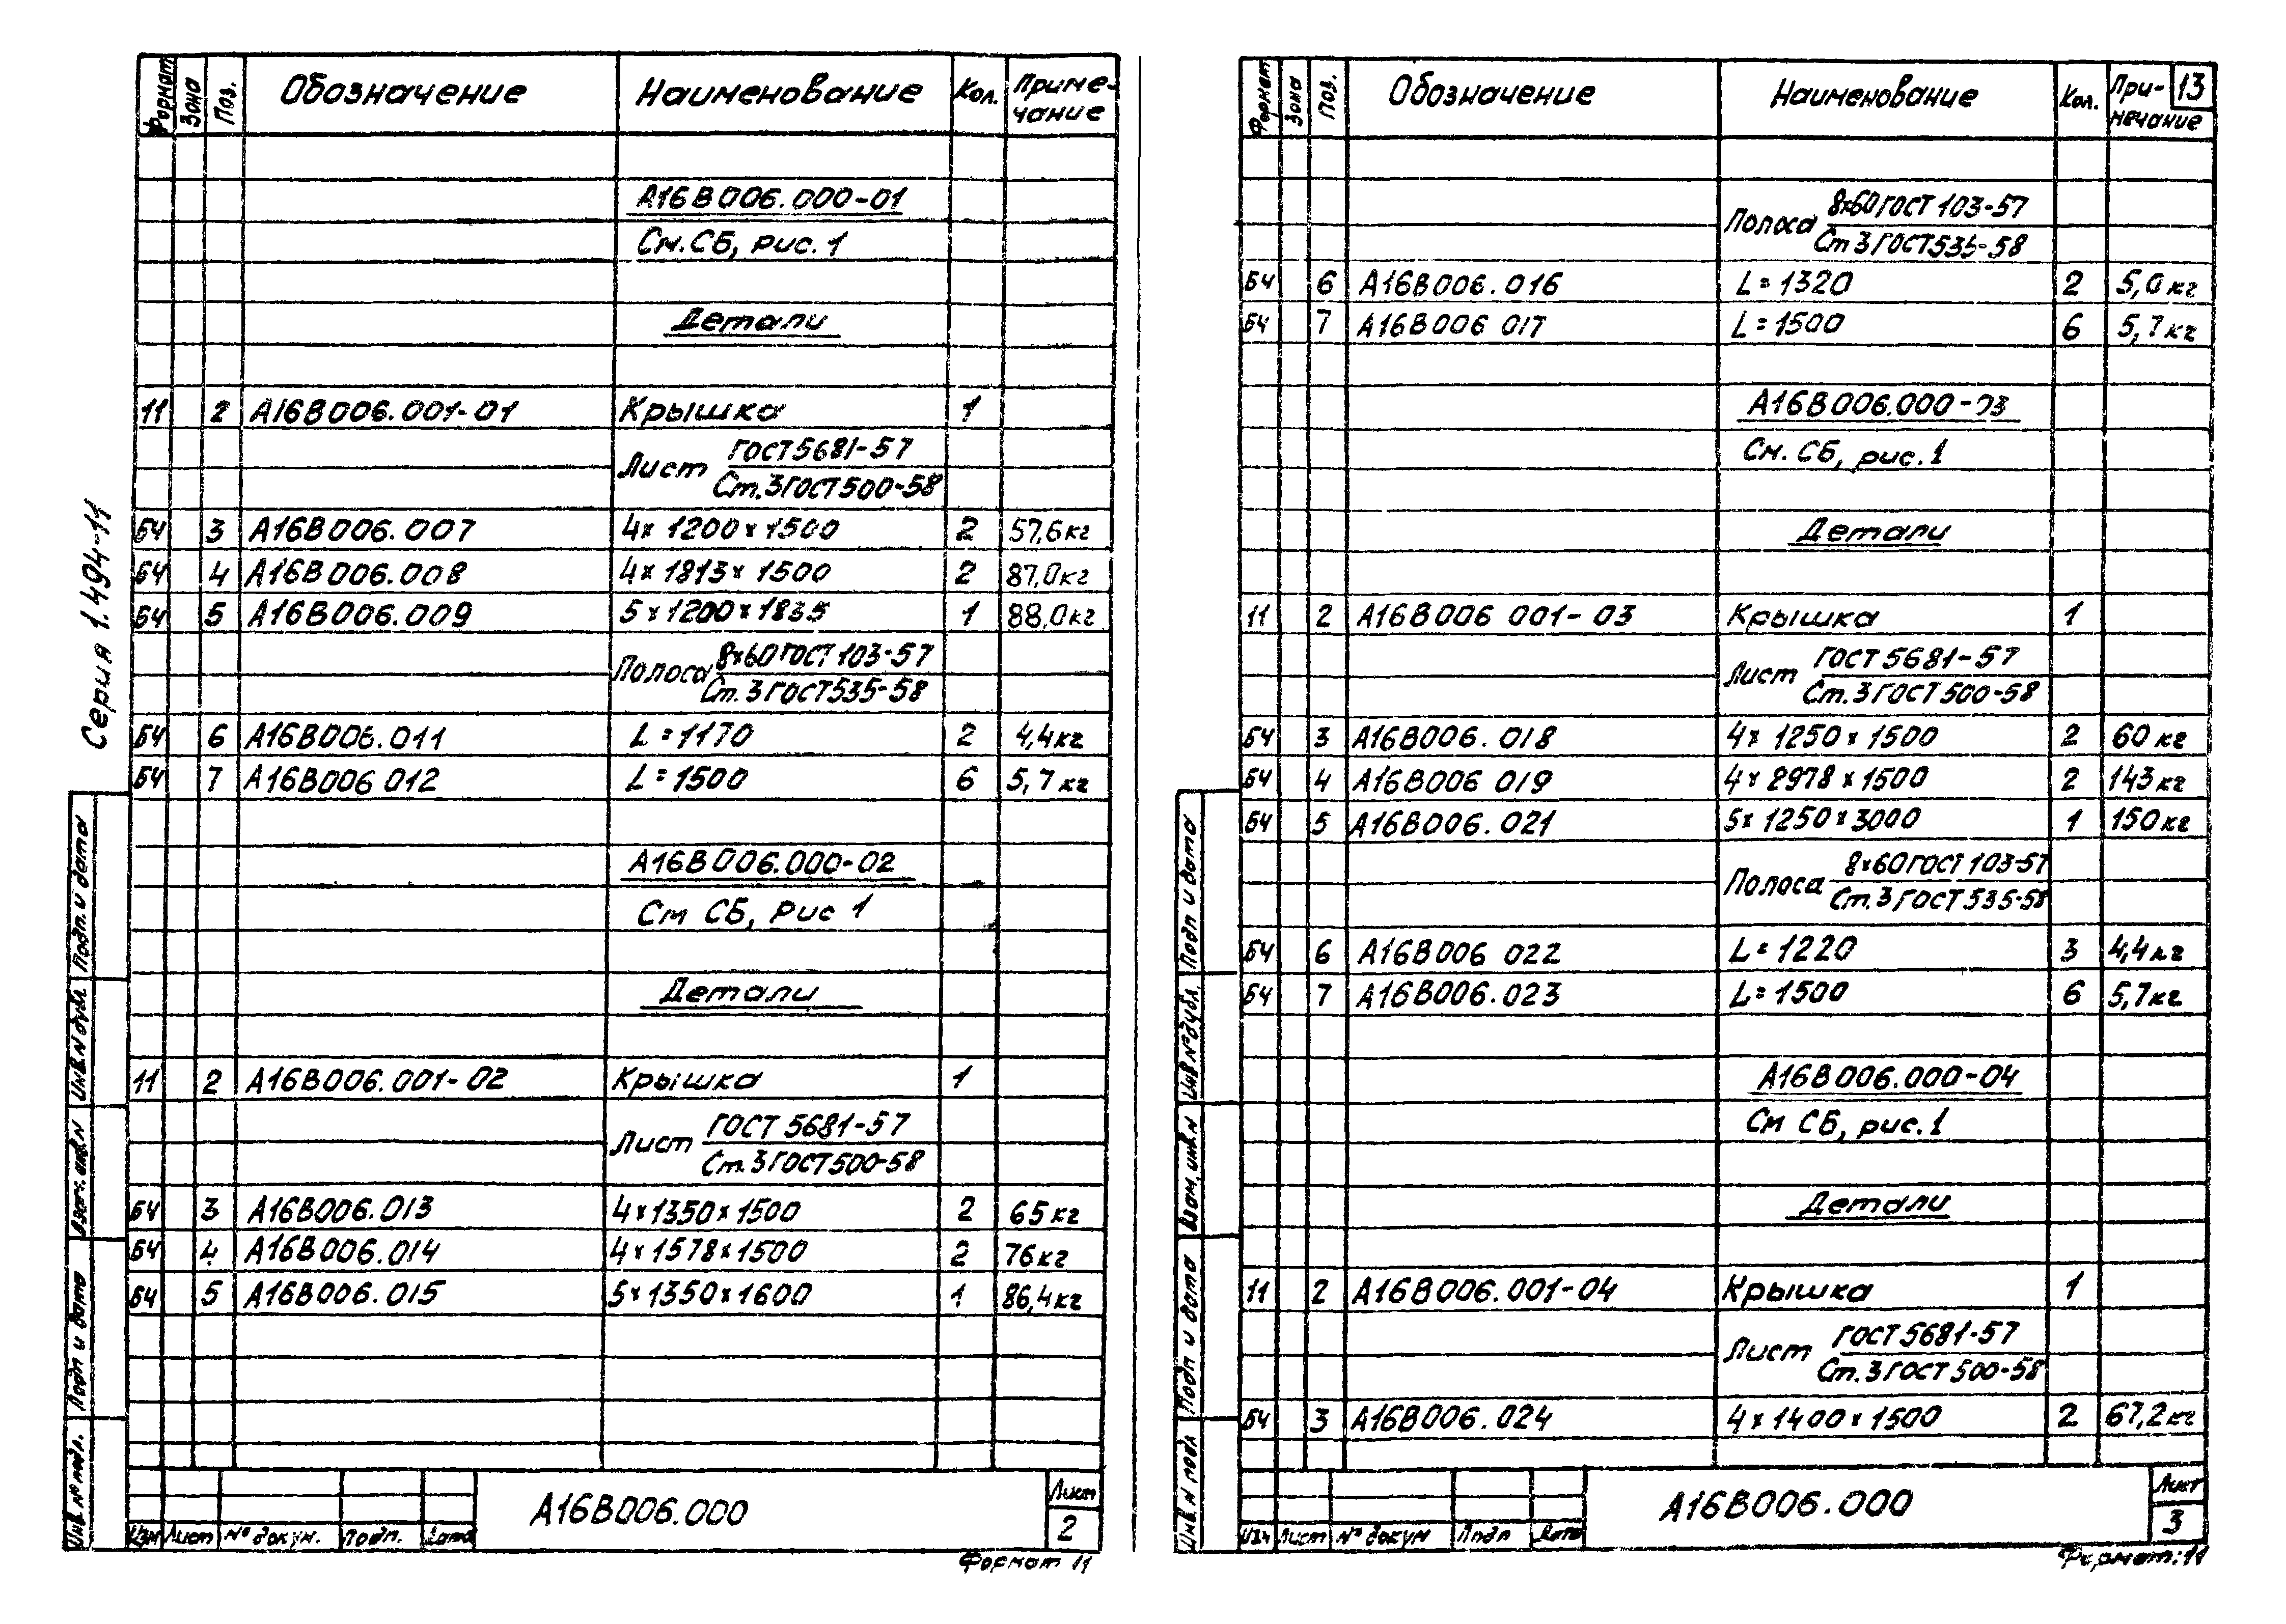 Серия 1.494-11
Формат Зона Поз. Обозначение Наименование Кол. Приме-
чание
А16В006.000-01
См. СБ, рис. 1
Детали
11 2 А16В006.001-01 Крышка 1
Лист ГОСТ 5681-57
Ст.3 ГОСТ 500-58
БЧ 3 А16В006.007 4х1200х1500 2 57,6кг
БЧ 4 А16В006.008 4х1813х1500 2 87,0кг
БЧ 5 А16В006.009 5х1200х1835 1 88,0кг
Полоса 8х60 ГОСТ 103-57
Ст.3 ГОСТ 535-58
БЧ 6 А16В006.011 L=1170 2 4,4кг
БЧ 7 А16В006 012 L=1500 6 5,7кг
А16В006.000-02
См СБ, рис 1
Детали
11 2 А16В006.001-02 Крышка 1
Лист ГОСТ 5681-57
Ст.3 ГОСТ 500-58
БЧ 3 А16В006.013 4х1350х1500 2 65кг
БЧ 4 А16В006.014 4х1578х1500 2 76кг
БЧ 5 А16В006.015 5х1350х1600 1 86,4кг
Подп. и дата
Инв.N дубл.
Взам. инв.N
Подп и дата
Инв. № подл.
Изм Лист № докум. Подп. Дата
А16В006.000
Лист
2
Формат 11
Формат Зона Поз. Обозначение Наименование Кол. При-
мечание
13
Полоса 8х60 ГОСТ 103-57
Ст 3 ГОСТ 535-58
БЧ 6 А16В006.016 L=1320 2 5,0кг
БЧ 7 А16В006 017 L=1500 6 5,7кг
А16В006.000-03
См. СБ, рис. 1
Детали
11 2 А16В006 001-03 Крышка 1
Лист ГОСТ 5681-57
Ст.3 ГОСТ 500-58
БЧ 3 А16В006.018 4х1250х1500 2 60кг
БЧ 4 А16В006 019 4х2978х1500 2 143кг
БЧ 5 А16В006.021 5х1250х3000 1 150кг
Полоса 8х60 ГОСТ 103-57
Ст.3 ГОСТ 535-58
БЧ 6 А16В006 022 L=1220 3 4,4кг
БЧ 7 А16В006.023 L=1500 6 5,7кг
А16В006.000-04
См СБ, рис. 1
Детали
11 2 А16В006.001-04 Крышка 1
Лист ГОСТ 5681-57
Ст.3 ГОСТ 500-58
БЧ 3 А16В006.024 4х1400х1500 2 67,2кг
Подп и дата
Инв №дубл.
Взам. инв.N
Подп и дата
Инв.N подл
Изм Лист № докум Подп Дата
А16В006.000
Лист
3
Формат:11